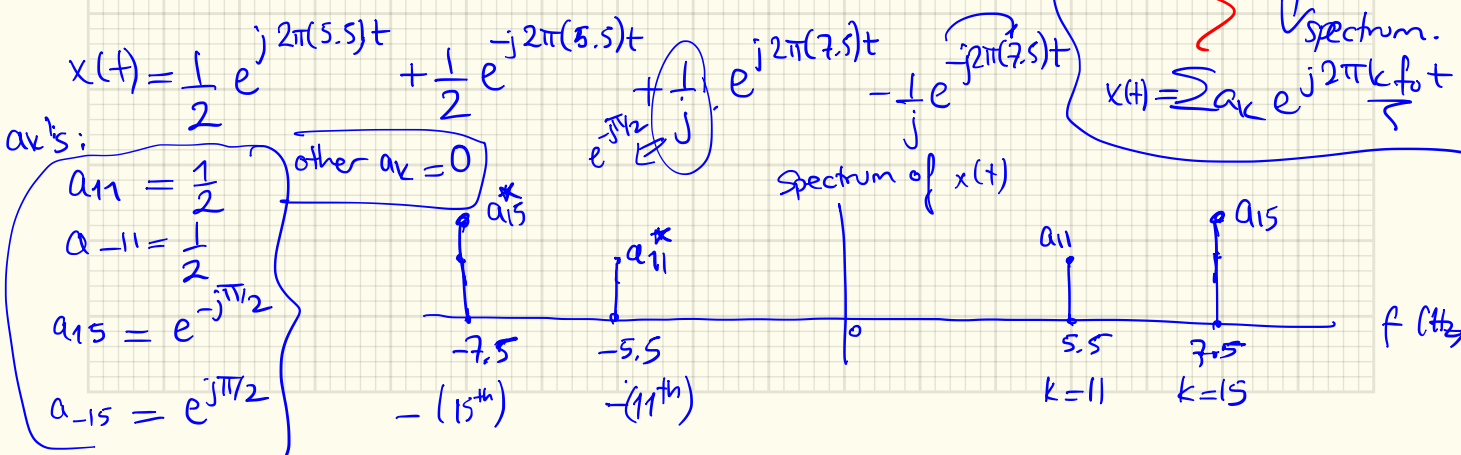 x(t) = 1/2 e^{j2π(5.5)t} + 1/2 e^{-j2π(5.5)t} + 1/j . e^{j2π(7.5)t} - 1/j e^{-j2π(7.5)t}
e^{-jπ/2}
spectrum.
x(t) = ∑ a_k e^{j2πkf₀t}
ak's:
other a_k = 0
a_11 = 1/2
a_-11 = 1/2
a_15 = e^{-jπ/2}
a_-15 = e^{jπ/2}
Spectrum of x(t)
a*_15 a*_11 a_11 a_15
-7.5 -5.5 0 5.5 7.5 f (Hz
-(15th) -(11th) k=11 k=15